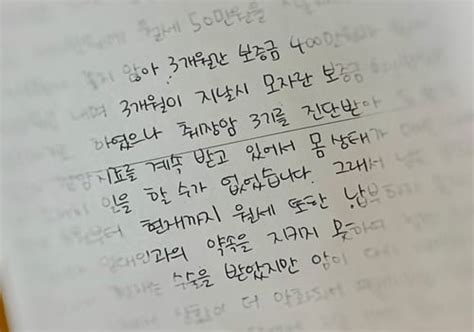 월세 50만원을
않아 3개월간 보증금 400만원
내며 3개월이 지날시 모자란 보증금
하였으나 췌장암 3기를 진단받아
항암치료를 계속 받고 있어서 몸 상태가
일을 할 수가 없었습니다. 그래서
부터 현재까지 월세 또한 납부하지
임대인과의 약속을 지키지 못하여
수술을 받았지만 암이
더 악화되어